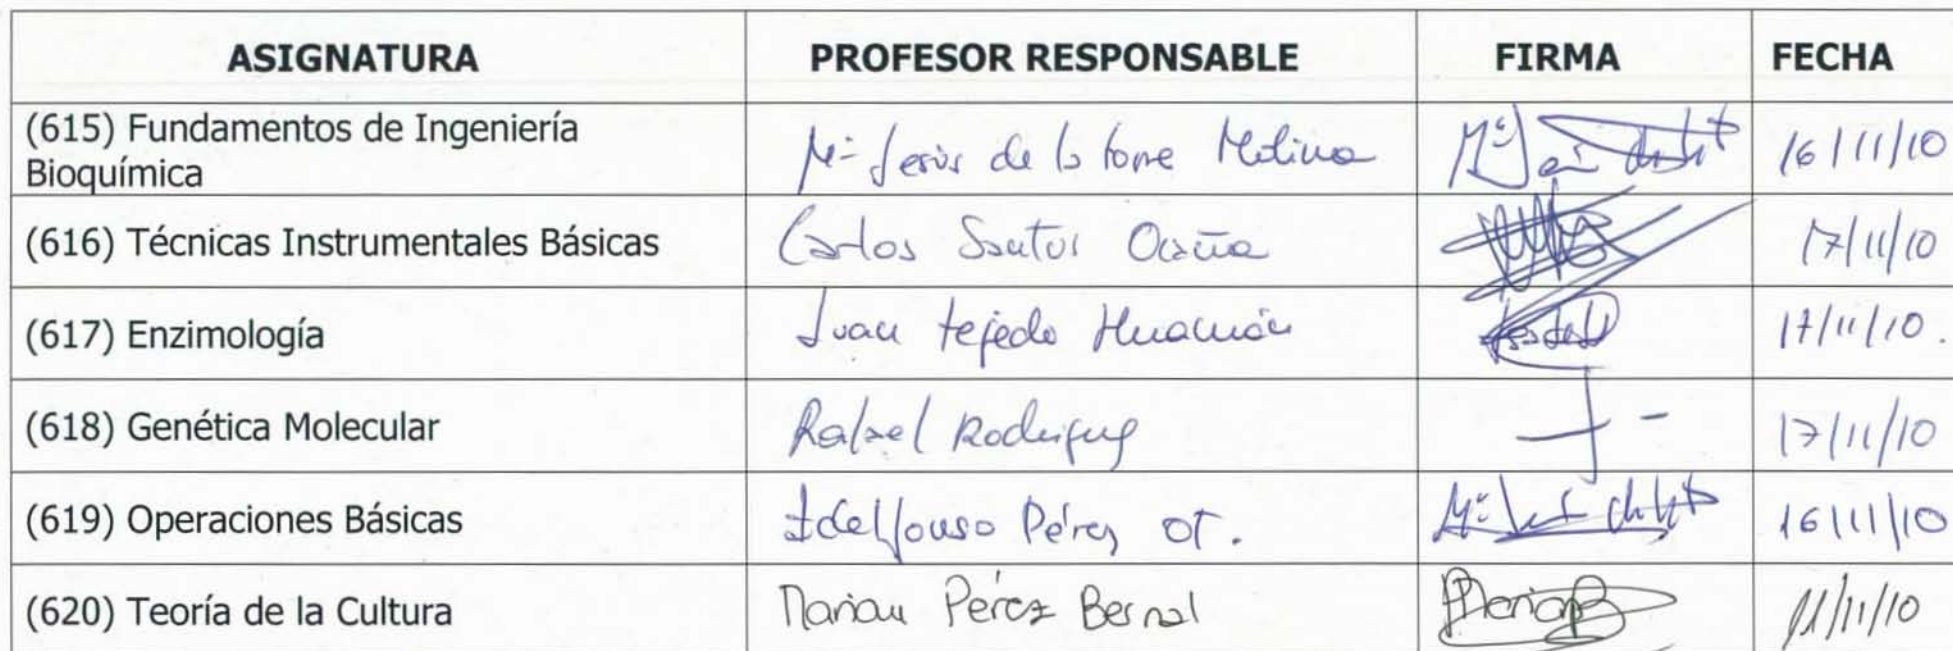 ASIGNATURA PROFESOR RESPONSABLE FIRMA FECHA
(615) Fundamentos de Ingeniería
Bioquímica
Mª Jesús de la Torre Molina 16/11/10
(616) Técnicas Instrumentales Básicas Carlos Santos Ocaña 17/11/10
(617) Enzimología Juan Tejedo Huamán 17/11/10.
(618) Genética Molecular Rafael Rodríguez 17/11/10
(619) Operaciones Básicas Idelfonso Pérez OT. 16/11/10
(620) Teoría de la Cultura Marian Pérez Bernal 11/11/10